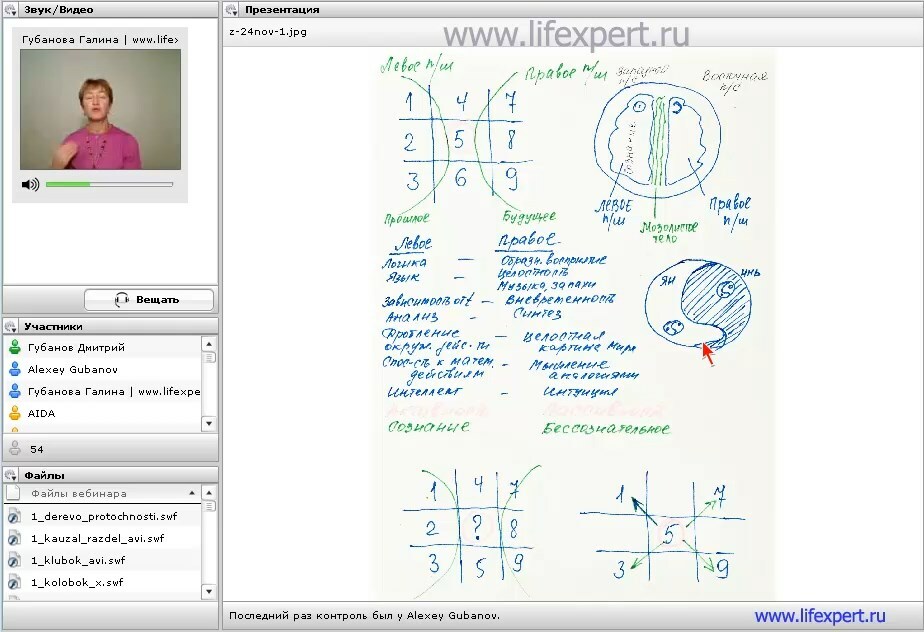 Звук/Видео
Губанова Галина | www.life>
Вещать
Участники
Губанов Дмитрий
Alexey Gubanov
Губанова Галина | www.lifexpe
AIDA
54
Файлы
Файлы вебинара
1_derevo_protochnosti.swf
1_kauzal_razdel_avi.swf
1_klubok_avi.swf
1_kolobok_x.swf
Презентация
z-24nov-1.jpg
www.lifexpert.ru
Левое п/ш
Правое п/ш
1 4 7
2 5 8
3 6 9
Прошлое
Будущее
Западная п/с
Восточная п/с
сознание
ЛЕВОЕ п/ш
Мозолистое тело
Правое п/ш
Левое Правое
Логика — Образн. восприятие
Язык — Целостность
Музыка, запахи
Зависимость от t — Вневременность
Анализ - Синтез
Дробление окруж. дейс-ти — Целостная картина Мира
Спос-сть к матем. действиям - Мышление аналогиями
Интеллект - Интуиция
Сознание Бессознательное
ЯН
ИНЬ
1 4 7
2 ? 8
3 5 9
1 7
5
3 9
Последний раз контроль был у Alexey Gubanov.
www.lifexpert.ru